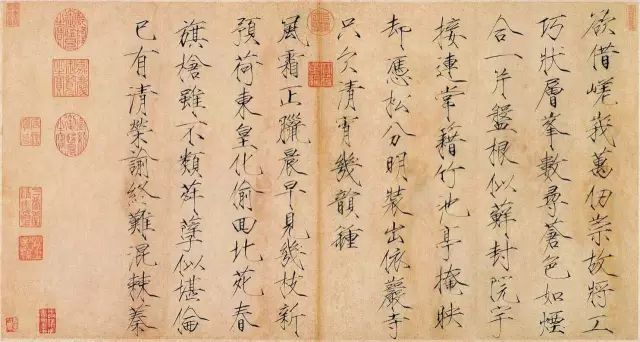 欲借嵯峩萬仞崇故將工
巧狀層峯數尋蒼色如煙
合一片盤根似蘚封院宇
接連常藉竹池亭掩映
却憑松分明裝出依巖寺
只欠清宵幾韻鍾
風霜正臘晨早見幾枝新
預荷東皇化偷回北苑春
旗槍雖不類荈孽似堪倫
已有清榮諭終難混棘榛